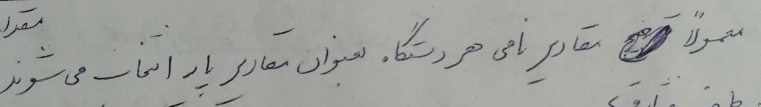 معمولاً مقادیر نامی هر دستگاه بعنوان مقادیر پایه انتخاب می شوند